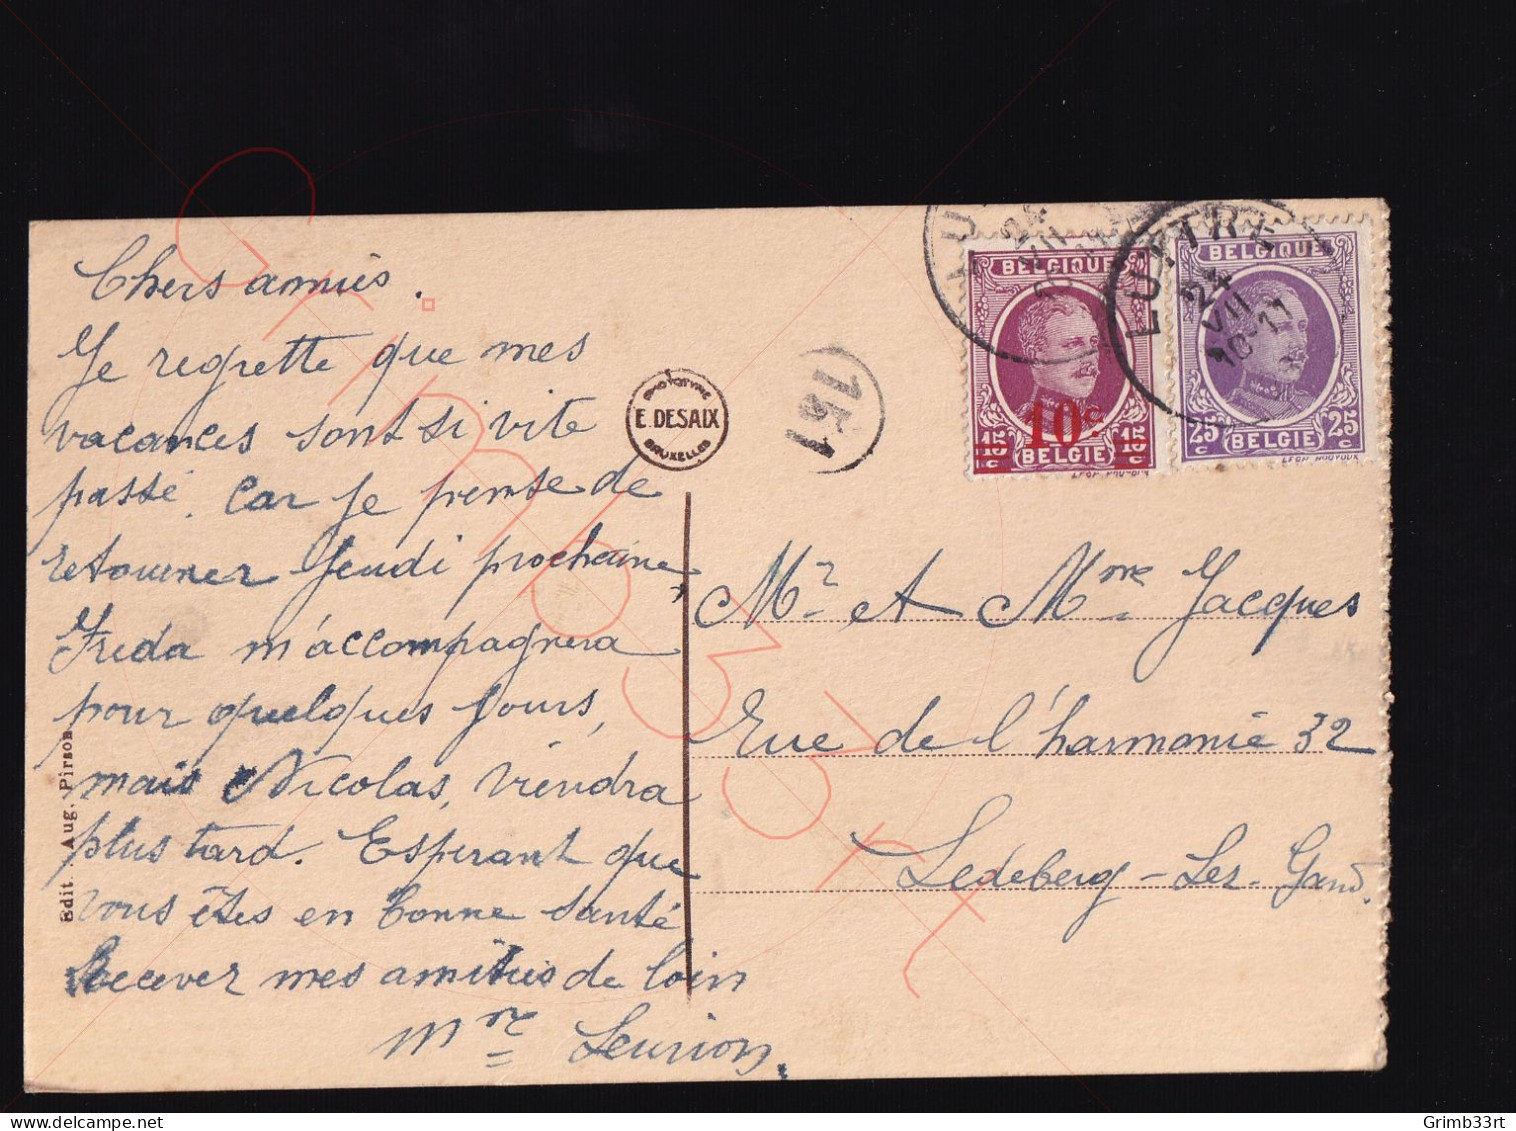 Chers amies.
Je regrette que mes
vacances sont si vite
passé. Car je pense de
retourner Jeudi prochaine,
Freda m'accompagnera
pour quelques jours,
mais Nicolas, viendra
plus tard. Esperant que
vous êtes en bonne santé
Recever mes amitiés de loin
Mme
Edit. Aug. Pirson
PHOTOTYPIE
E. DESAIX
BRUXELLES
151
LUTTRE
24
VII
10-11
BELGIQUE
10c
15 c 15 c
BELGIE
BELGIQUE
25 c 25 c
BELGIE
Mr et Mme Jacques
Rue de l'harmonie 32
Ledeberg-Lez-Gand.
Grimb33rt
Grimb33rt